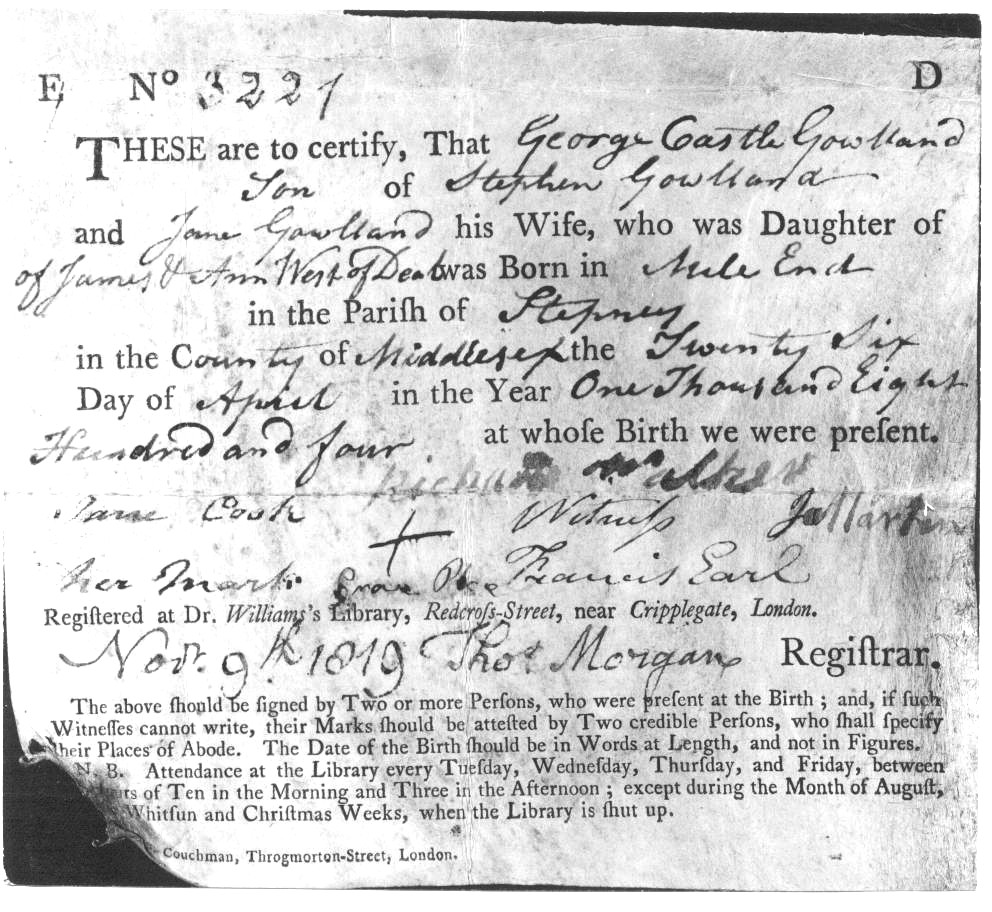 E, Nº 3221 D
THESE are to certify, That George Castle Gowlland
Son of Stephen Gowlland
and Jane Gowlland his Wife, who was Daughter of
of James & Ann West of Deal was Born in Mile End
in the Pariſh of Stepney
in the County of Middlesex the Twenty Six
Day of April in the Year One Thousand Eight
Hundred and four at whoſe Birth we were preſent.
Richard Walker
Jane Cook Witneſs Ja Martin
her Mark + Grove Francis Earl
Regiſtered at Dr. Williams's Library, Redcroſs-Street, near Cripplegate, London.
Novr. 9th 1819 Thos Morgan Regiſtrar.
The above ſhould be ſigned by Two or more Perſons, who were preſent at the Birth ; and, if ſuch
Witneſſes cannot write, their Marks ſhould be atteſted by Two credible Perſons, who ſhall ſpecify
their Places of Abode. The Date of the Birth ſhould be in Words at Length, and not in Figures.
N. B. Attendance at the Library every Tueſday, Wedneſday, Thurſday, and Friday, between
of Ten in the Morning and Three in the Afternoon ; except during the Month of Auguſt,
Whitſun and Chriſtmas Weeks, when the Library is ſhut up.
Couchman, Throgmorton-Street, London.